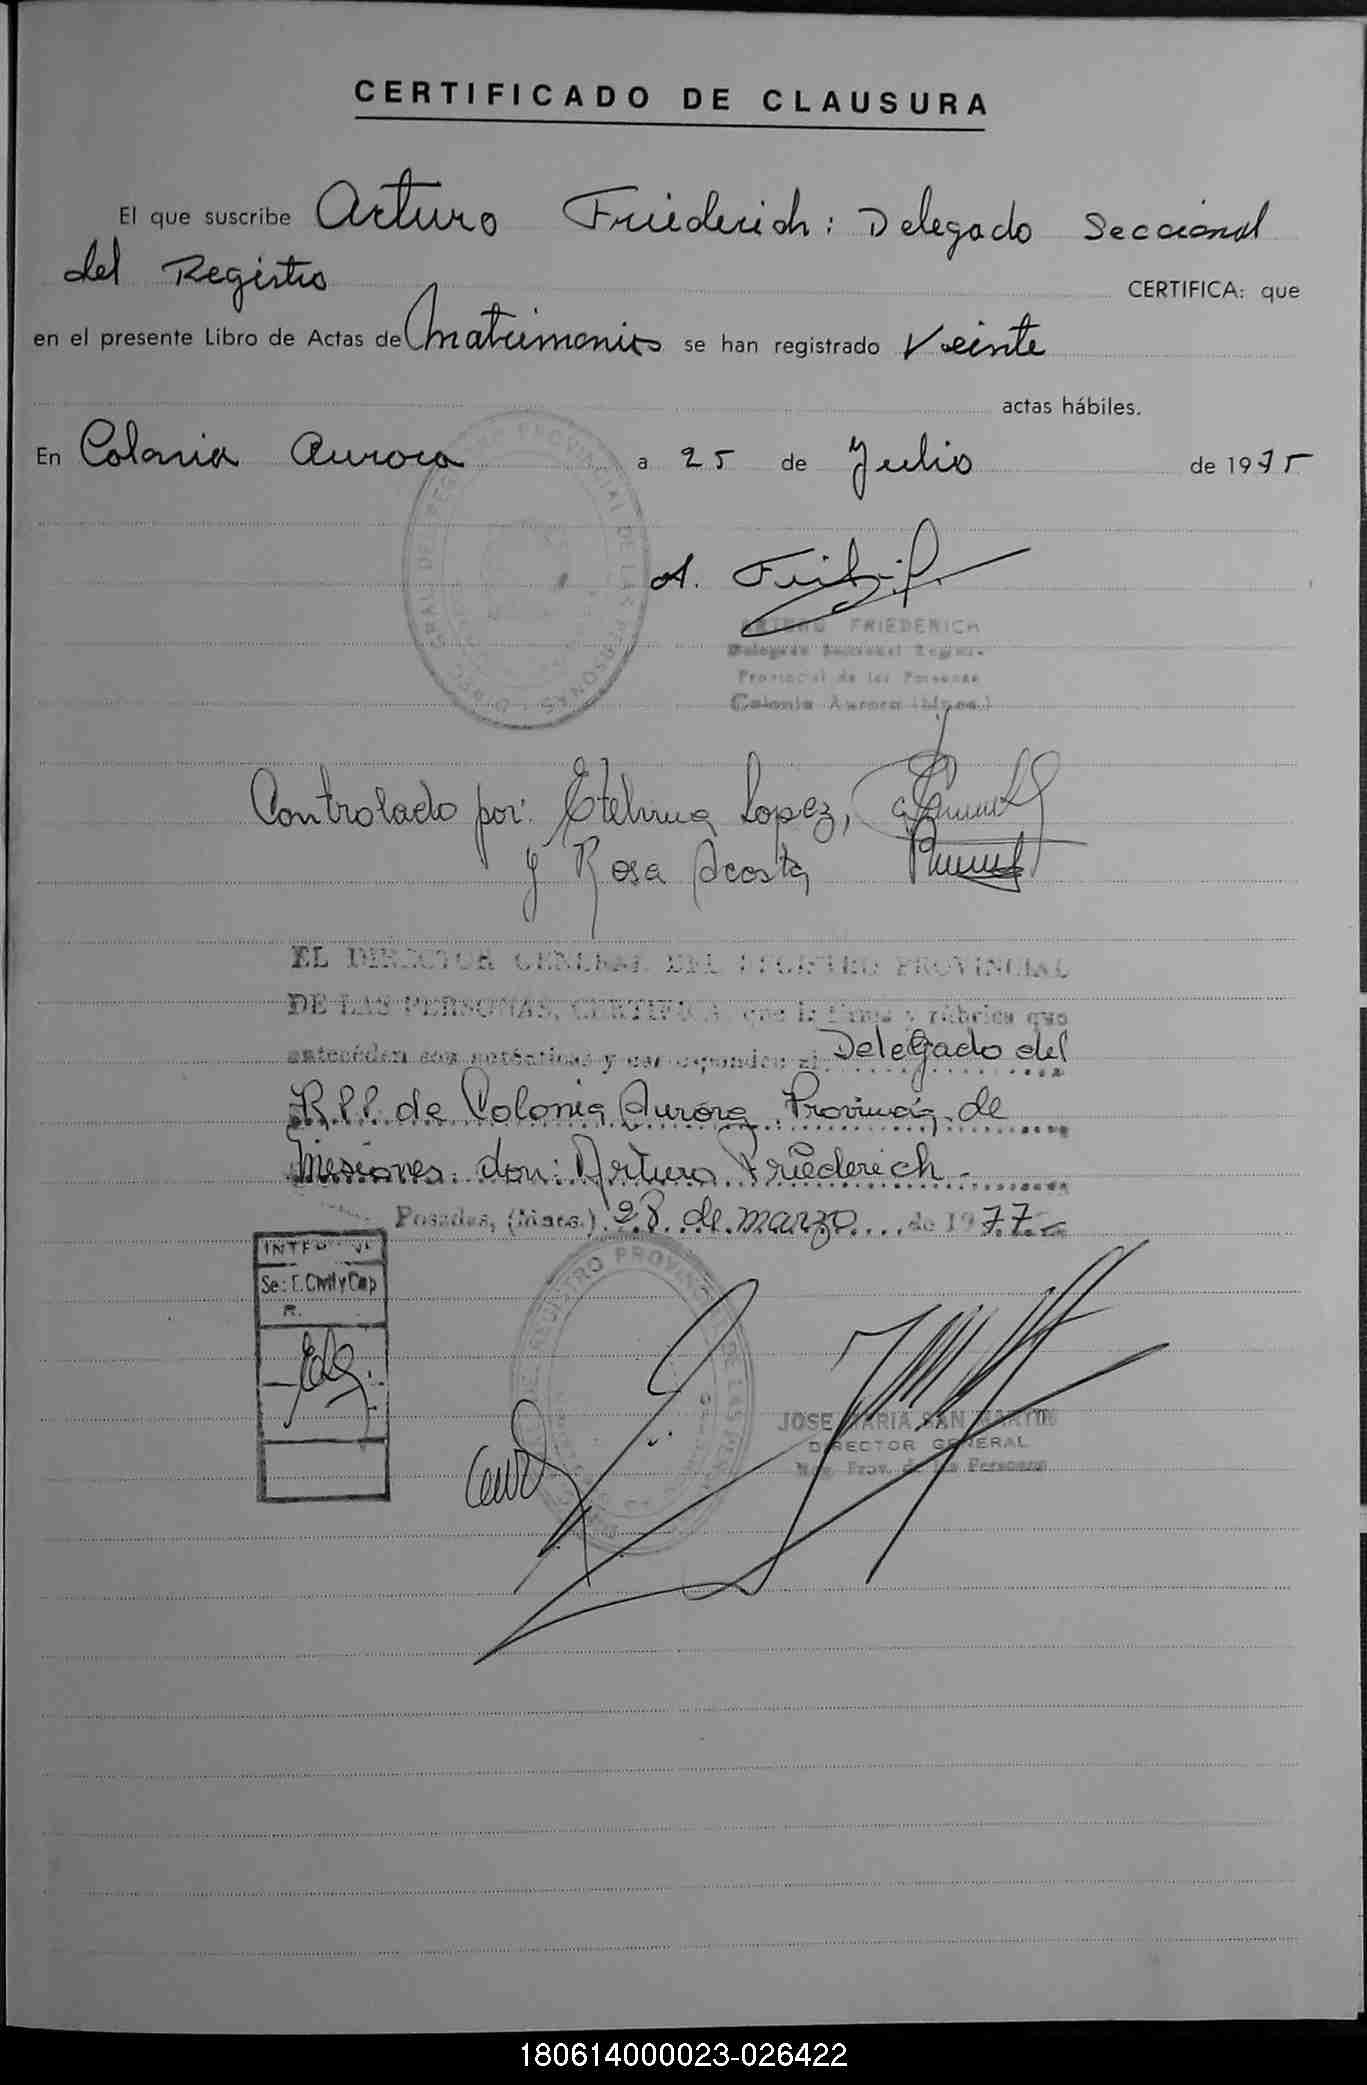 CERTIFICADO DE CLAUSURA
El que suscribe Arturo Friederich: Delegado Seccional
del Registro CERTIFICA: que
en el presente Libro de Actas de Matrimonios se han registrado Veinte
actas hábiles.
En Colonia Aurora a 25 de Julio de 1975
A.
ARTURO FRIEDERICH
Delegado Seccional Registro
Provincial de las Personas
Colonia Aurora (Mnes.)
Controlado por: Etelvina Lopez,
y Rosa Acosta
EL DIRECTOR GENERAL DEL REGISTRO PROVINCIAL
DE LAS PERSONAS, CERTIFICA, que la firma y rúbrica que
anteceden son auténticas y corresponden al Delegado del
R.P.P. de Colonia Aurora, Provincia de
Misiones. don: Arturo Friederich.-
Posadas, (Mnes.) 28 de marzo de 1977.-
Sec. E. Civil y Cap
R.
REGISTRO PROVINCIAL DE LAS PERSONAS
JOSE MARIA SAN MARTIN
DIRECTOR GENERAL
Reg. Prov. de las Personas
180614000023-026422